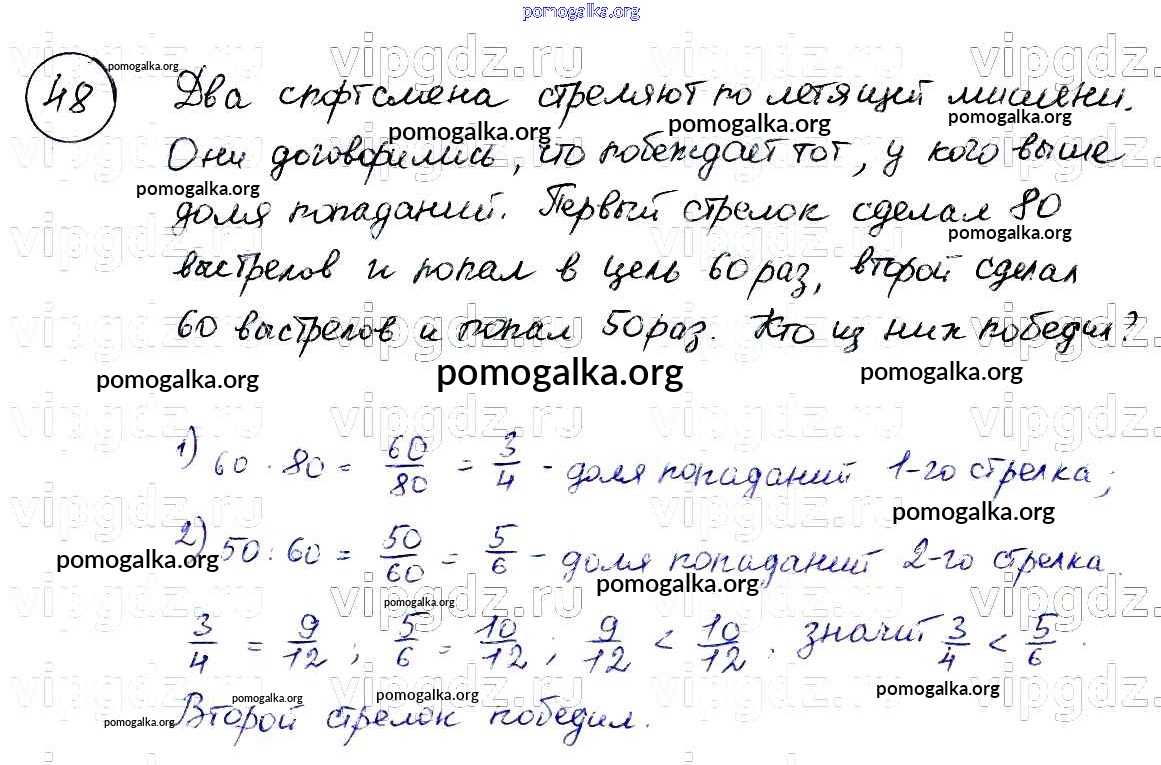 pomogalka.org
48 Два спортсмена стреляют по летящей мишени.
Они договорились, что побеждает тот, у кого выше
доля попаданий. Первый стрелок сделал 80
выстрелов и попал в цель 60 раз, второй сделал
60 выстрелов и попал 50 раз. Кто из них победил?
pomogalka.org pomogalka.org pomogalka.org
1) 60 · 80 = 60/80 = 3/4 - доля попаданий 1-го стрелка;
2) 50 : 60 = 50/60 = 5/6 - доля попаданий 2-го стрелка.
3/4 = 9/12; 5/6 = 10/12; 9/12 < 10/12, значит 3/4 < 5/6.
Второй стрелок победил.